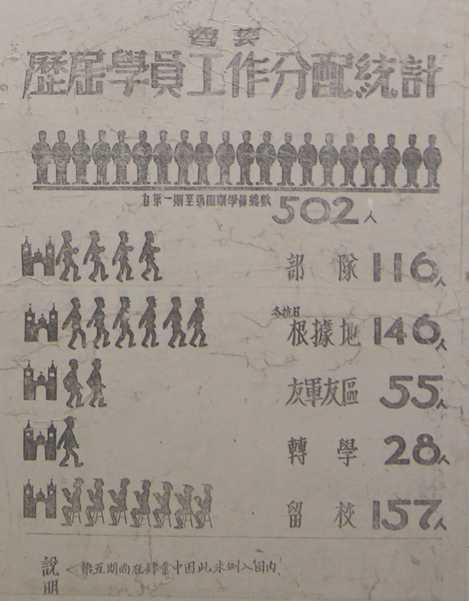 魯藝
歷屆學員工作分配統計
自第一期至第四期學員總數 502人
部隊 116人
各抗日根據地 146人
友軍友區 55人
轉學 28人
留校 157人
說明 第五期尚在肄業中因此未列入圖內